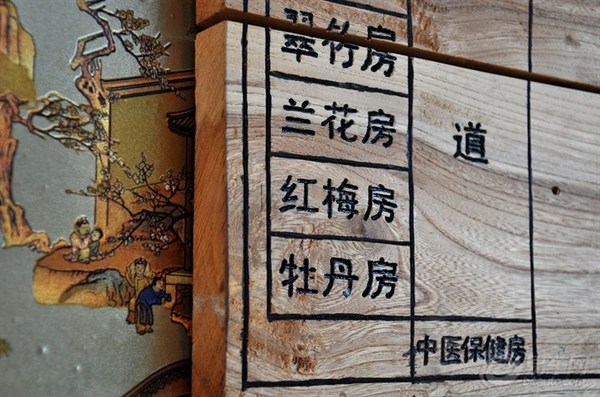 翠竹房
兰花房
道
红梅房
牡丹房
中医保健房